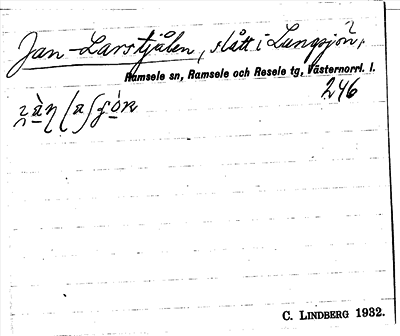 Jan-Larstjälen, slått i Lungsjön,
Ramsele sn, Ramsele och Resele tg, Västernorrl. l.
246
C. LINDBERG 1932.